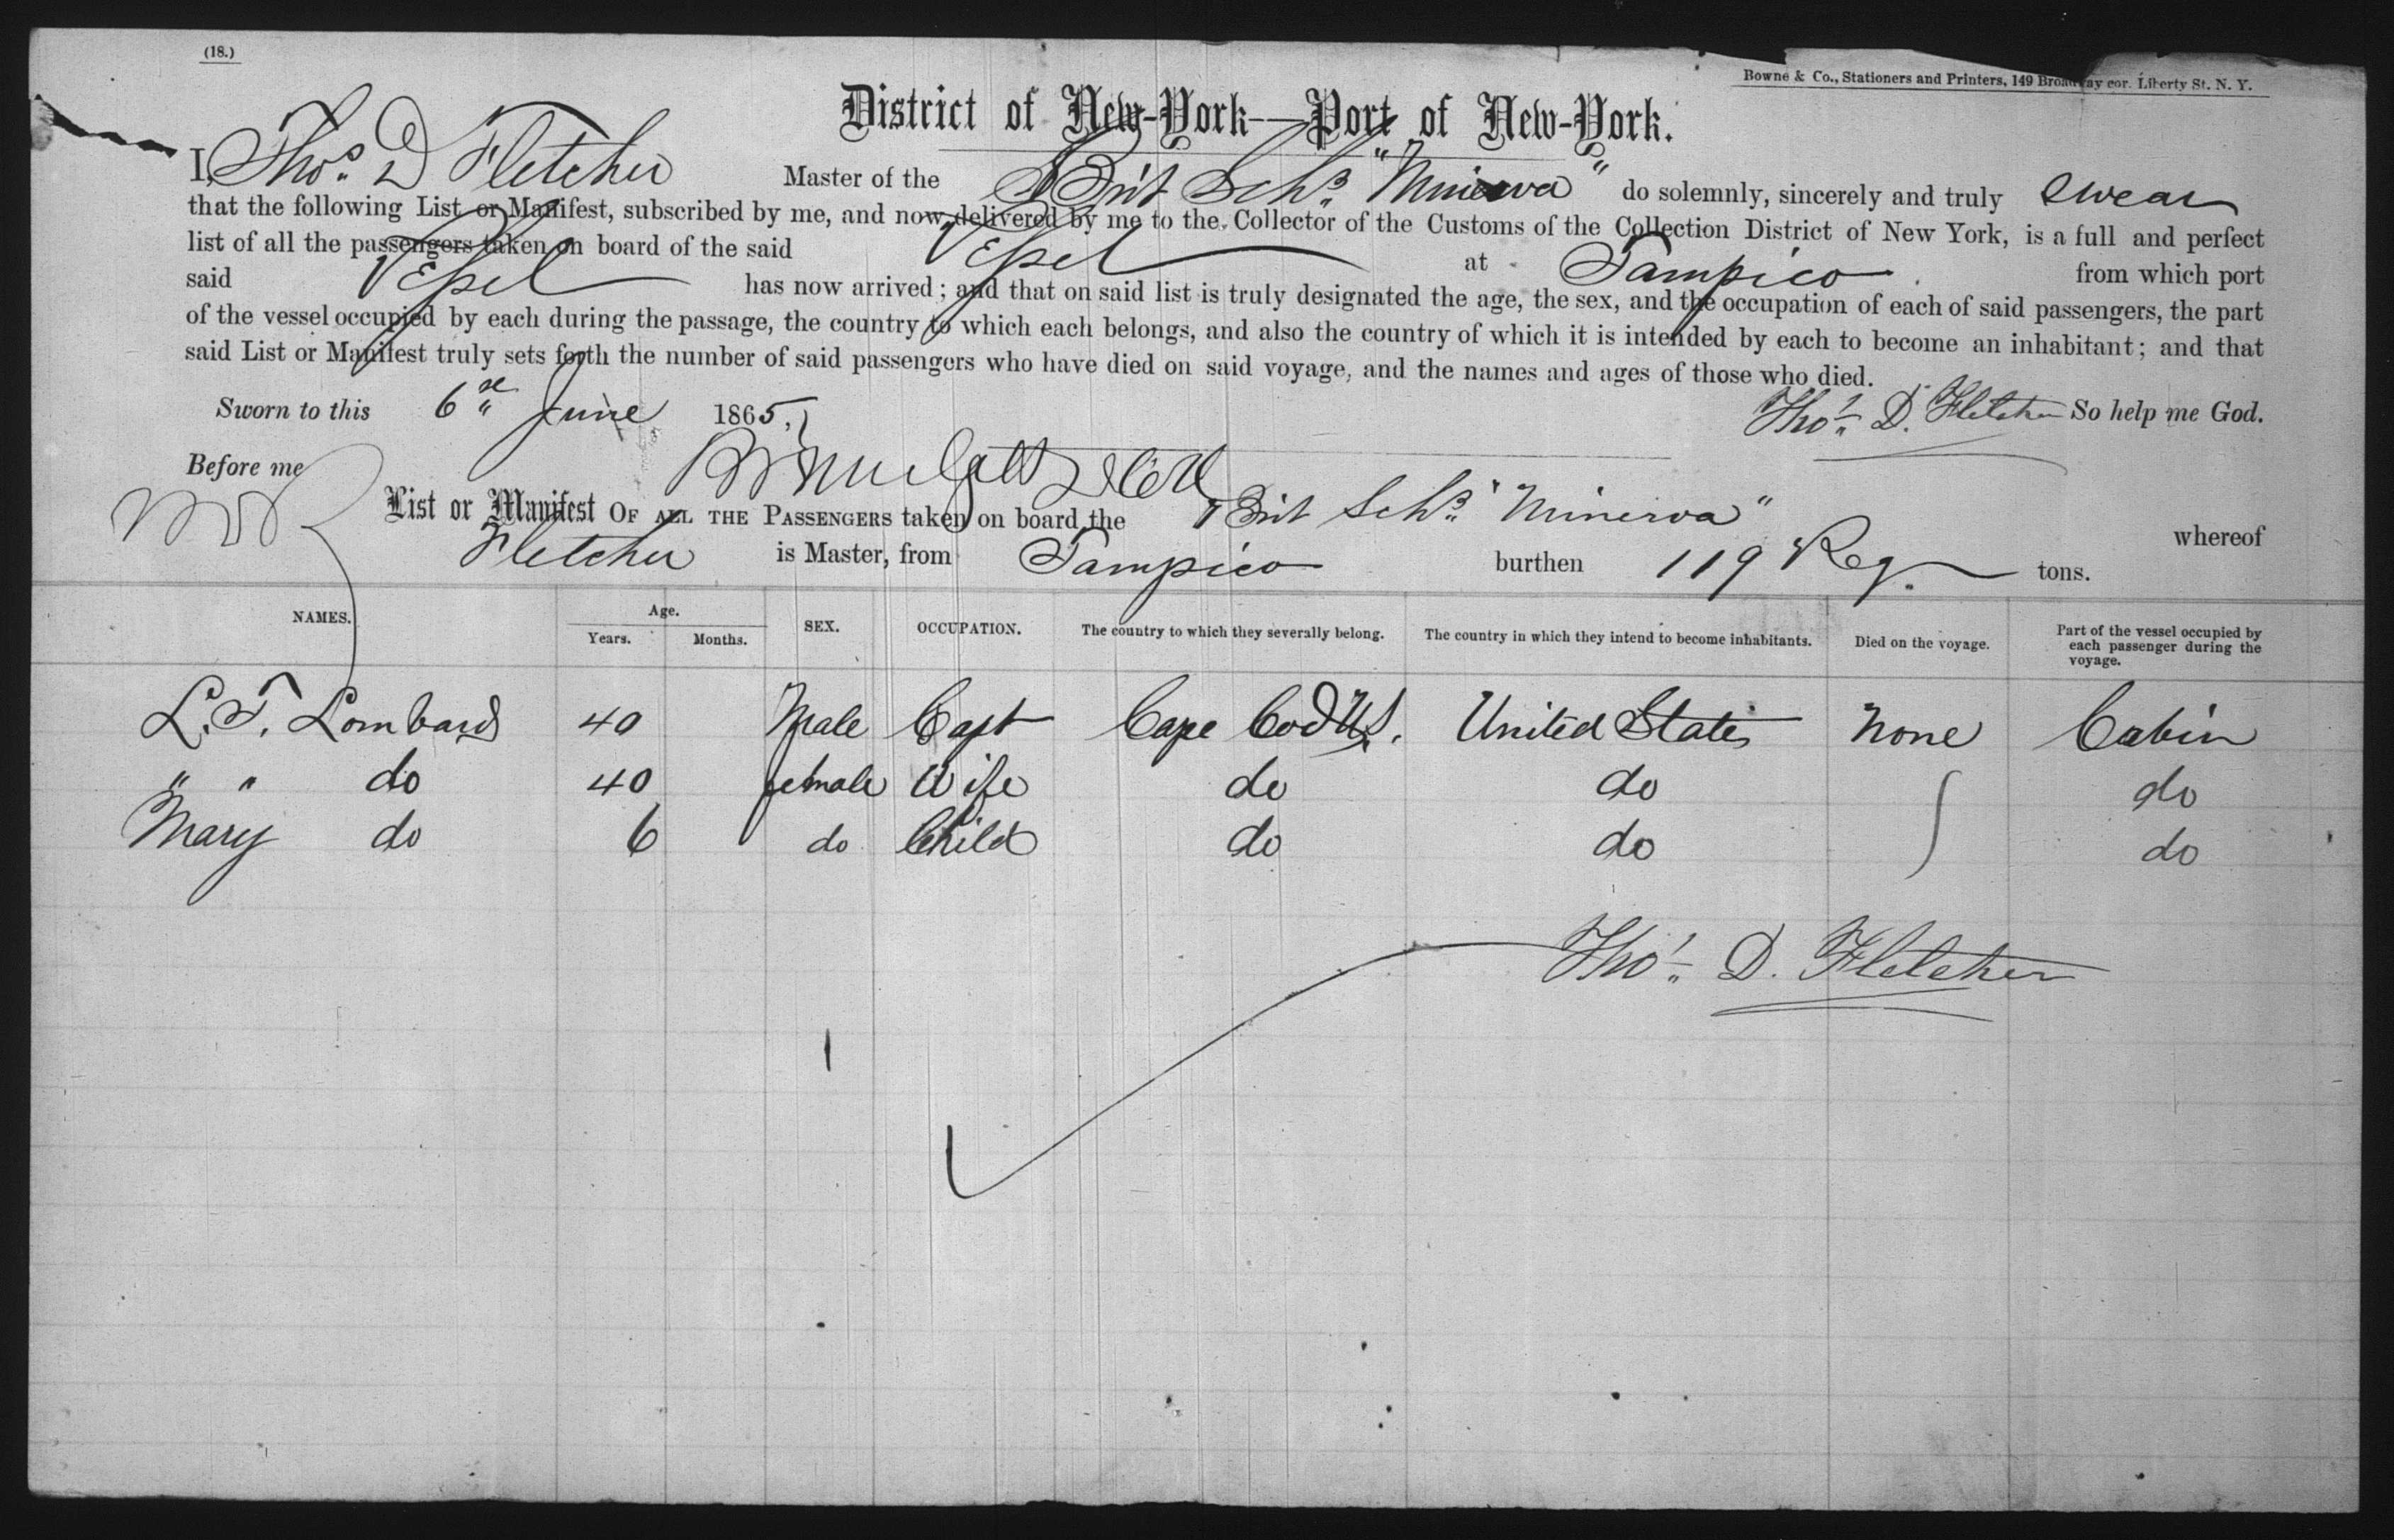 (18.)
Bowne & Co., Stationers and Printers, 149 Broadway cor. Liberty St. N. Y.
District of New-York—Port of New-York.
I, Thos. D Fletcher Master of the Brit Schr. "Minerva" do solemnly, sincerely and truly swear
that the following List or Manifest, subscribed by me, and now delivered by me to the Collector of the Customs of the Collection District of New York, is a full and perfect
list of all the passengers taken on board of the said Vessel at Tampico from which port
said Vessel has now arrived; and that on said list is truly designated the age, the sex, and the occupation of each of said passengers, the part
of the vessel occupied by each during the passage, the country to which each belongs, and also the country of which it is intended by each to become an inhabitant; and that
said List or Manifest truly sets forth the number of said passengers who have died on said voyage, and the names and ages of those who died.
Sworn to this 6 June 1865, Thos. D. Fletcher So help me God.
Before me
List or Manifest OF ALL THE PASSENGERS taken on board the Brit Schr. "Minerva" whereof
Fletcher is Master, from Tampico burthen 119 Reg. tons.
NAMES. Age. Years. Months. SEX. OCCUPATION. The country to which they severally belong. The country in which they intend to become inhabitants. Died on the voyage. Part of the vessel occupied by each passenger during the voyage.
L. T. Lombard 40 Male Capt Cape Cod U.S. United States None Cabin
" " do 40 female Wife do do do
Mary do 6 do Child do do do
Thos. D. Fletcher